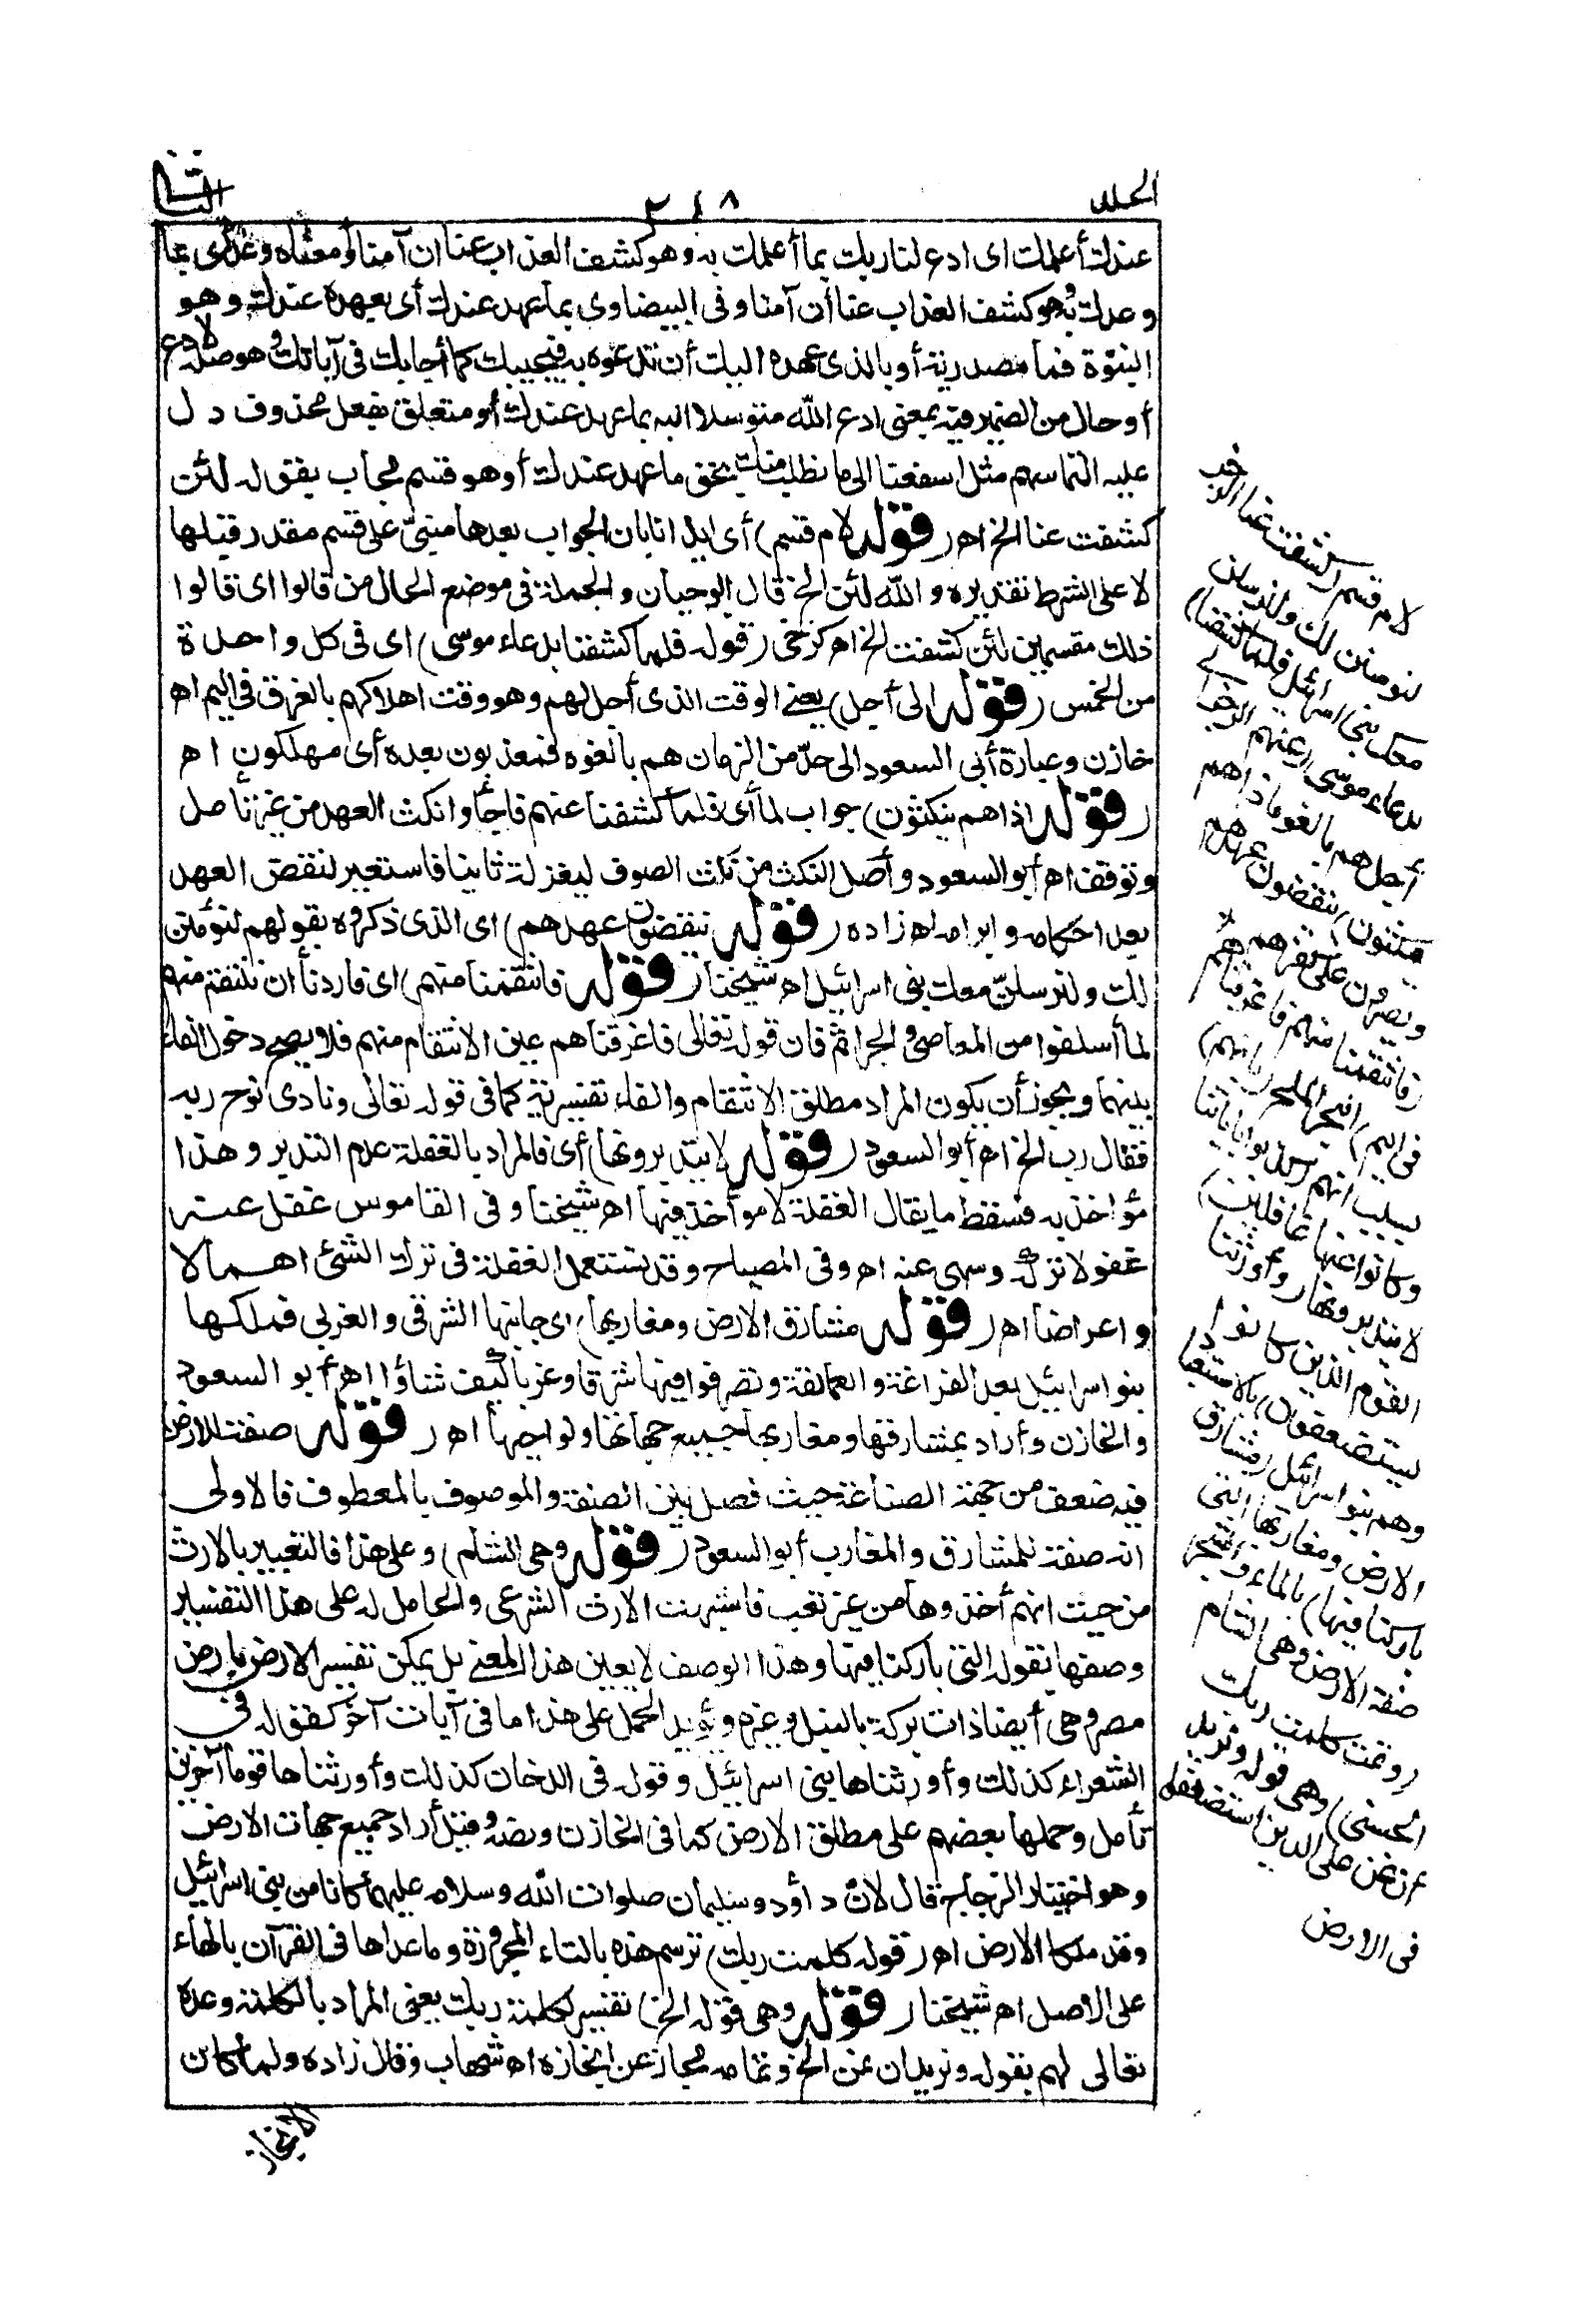 الجلد
٢١٨
الثانى
عندك أعلمك اى ادع لنا ربك بما أعلمك به وهو كشف العذاب عنا ان آمنا ومعناه وعبارة الكرخى بما
وعدك به وهو كشف العذاب عنا أن آمنا وفى البيضاوى بما عهد عندك أى بعهده عندك وهو
النبوّة فما مصدرية أو بالذى عهده اليك أن تدعوه به فيجيبك كما أجابك فى آياتك وهو صلة لادع
أو حال من الضمير فيه بمعنى ادع الله متوسلا اليه بما عهد عندك أو متعلق بفعل محذوف دل
عليه التماسهم مثل اسعفنا الى ما نطلب منك بحق ما عهد عندك أو هو قسم مجاب بقوله لئن
كشفت عنا الخ اهـ (قوله لام قسم) أى ايذانا بان الجواب بعدها مبنىّ على قسم مقدر قبلها
لا على الشرط تقديره والله لئن الخ قال ابو حيان والجملة فى موضع الحال من قالوا اى قالوا
ذلك مقسمين لئن كشفت الخ اهـ كرخى (قوله فلما كشفنا بدعاء موسى) اى فى كل واحدة
من الخمس (قوله الى أجل) يعنى الوقت الذى أجل لهم وهو وقت اهلاكهم بالغرق فى اليم اهـ
خازن وعبارة أبى السعود الى حدّ من الزمان هم بالغوه فمعذبون بعده أى مهلكون اهـ
(قوله اذا هم ينكثون) جواب لما أى فلما كشفنا عنهم فاجأوا نكث العهد من غير تأمل
وتوقف اهـ أبو السعود وأصل النكث من نكث الصوف ليغزله ثانيا فاستعير لنقض العهد
بعد احكامه وابرامه اهـ زاده (قوله ينقضون عهدهم) اى الذى ذكروه بقولهم لنؤمنن
لك ولنرسلنّ معك بنى اسرائيل اهـ شيخنا (قوله فانتقمنا منهم) اى فاردنا أن ننتقم منهم
لما أسلفوا من المعاصى والجرائم فان قوله تعالى فاغرقناهم عين الانتقام منهم فلا يصح دخول الفاء
بينهما ويجوز أن يكون المراد مطلق الانتقام والفاء تفسيرية كما فى قوله تعالى ونادى نوح ربه
فقال رب الخ اهـ أبو السعود (قوله لا يتدبرونها) أى فالمراد بالغفلة عدم التدبر وهذا
مؤاخذ به فسقط ما يقال الغفلة لا مؤاخذة فيها اهـ شيخنا وفى القاموس غفل عنه
غفولا تركه وسهى عنه اهـ وفى المصباح وقد تستعمل الغفلة فى ترك الشئ اهمالا
واعراضا اهـ (قوله مشارق الارض ومغاربها) اى جانبها الشرقى والغربى فملكها
بنو اسرائيل بعد الفراعنة والعمالقة وتصرفوا فيها شرقا وغربا كيف شاؤا اهـ أبو السعود
والخازن وأراد بمشارقها ومغاربها جميع جهاتها ونواحيها اهـ (قوله صفة للارض)
فيه ضعف من جهة الصناعة حيث فصل بين الصفة والموصوف بالمعطوف فالاولى
انه صفة للمشارق والمغارب أبو السعود (قوله وهى الشام) وعلى هذا فالتعبير بالارث
من حيث انهم أخذوها من غير تعب فاشبهت الارث الشرعى والحامل له على هذا التفسير
وصفها بقوله التى باركنا فيها وهذا الوصف لا يعين هذا المعنى بل يمكن تفسير الارض بارض
مصر وهى أيضا ذات بركة بالنيل وغيره ويؤيد الحمل على هذا ما فى آيات آخر كقوله فى
الشعراء كذلك وأورثناها بنى اسرائيل وقوله فى الدخان كذلك وأورثناها قوما آخرين
تأمل وحملها بعضهم على مطلق الارض كما فى الخازن ونصه وقيل أراد جميع جهات الارض
وهو اختيار الزجاج قال لانّ داود وسليمان صلوات الله وسلامه عليهما كانا من بنى اسرائيل
وقد ملكا الارض اهـ (قوله كلمت ربك) ترسم هذه بالتاء المجرورة وما عداها فى القرآن بالهاء
على الاصل اهـ شيخنا (قوله وهى قوله الخ) تفسير لكلمة ربك يعنى المراد بالكلمة وعده
تعالى لهم بقوله ونريد ان نمن الخ وتمامه مجاز عن انجازه اهـ شهاب وقال زاده ولما كان
الانجاز
لام قسم (كشفت عنا الرجز
لنؤمنن لك ولنرسلن
معك بنى اسرائيل فلما كشفنا)
بدعاء موسى (عنهم الرجز الى
أجل هم بالغوه اذا هم
ينكثون) ينقضون عهدهم
ويصرون على كفرهم
(فانتقمنا منهم فاغرقناهم
فى اليم) البحر الملح (بانهم)
بسبب انهم (كذبوا باياتنا
وكانوا عنها غافلين)
لا يتدبرونها (وأورثنا
القوم الذين كانوا
يستضعفون) بالاستعباد
وهم بنو اسرائيل (مشارق
الارض ومغاربها التى
باركنا فيها) بالماء والشجر
صفة الارض وهى الشام
(وتمت كلمت ربك
الحسنى) وهى قوله ونريد
ان نمن على الذين استضعفوا
فى الارض